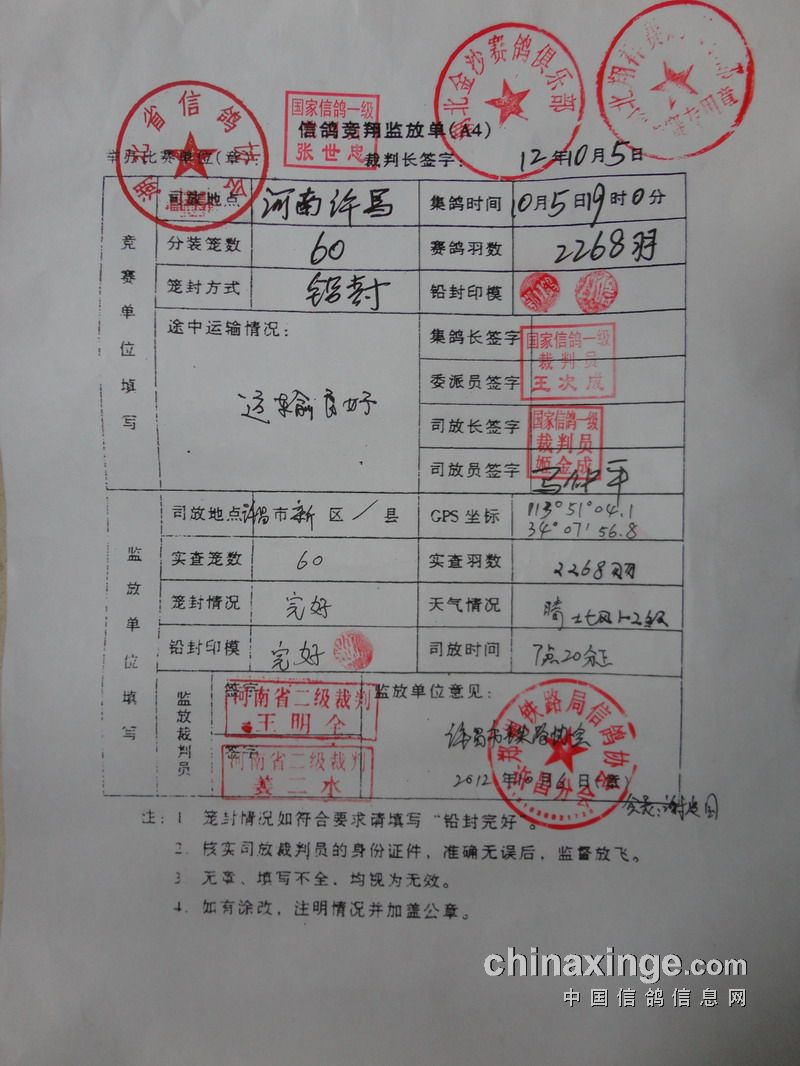 湖北省信鸽协会
国家信鸽一级
张世忠
北金沙赛鸽俱乐部
信鸽竞翔监放单(A4)
举办比赛单位(章)
裁判长签字: 12年10月5日
司放地点 河南许昌 集鸽时间 10月5日19时0分
竞赛单位填写
分装笼数 60 赛鸽羽数 2268羽
笼封方式 铅封 铅封印模
途中运输情况: 集鸽长签字
国家信鸽一级裁判员
王次成
委派员签字
运输良好
司放长签字
国家信鸽一级
裁判员
姬金成
司放员签字
监放单位填写
司放地点 许昌市新区/县 GPS坐标 113°51°04.1
34°07'56.8
实查笼数 60 实查羽数 2268羽
笼封情况 完好 天气情况 晴 北风1-2级
铅封印模 完好 司放时间 7点20分正
监放裁判员
签字
河南省二级裁判
王明全
签字
河南省二级裁判
姜二水
监放单位意见:
许昌市铁路协会
2012年10月6日(章)
铁路局信鸽协会
许昌分会
注: 1 笼封情况如符合要求请填写“铅封完好”。
2. 核实司放裁判员的身份证件，准确无误后，监督放飞。
3 无章、填写不全，均视为无效。
4. 如有涂改，注明情况并加盖公章。
chinaxinge.com
中国信鸽信息网